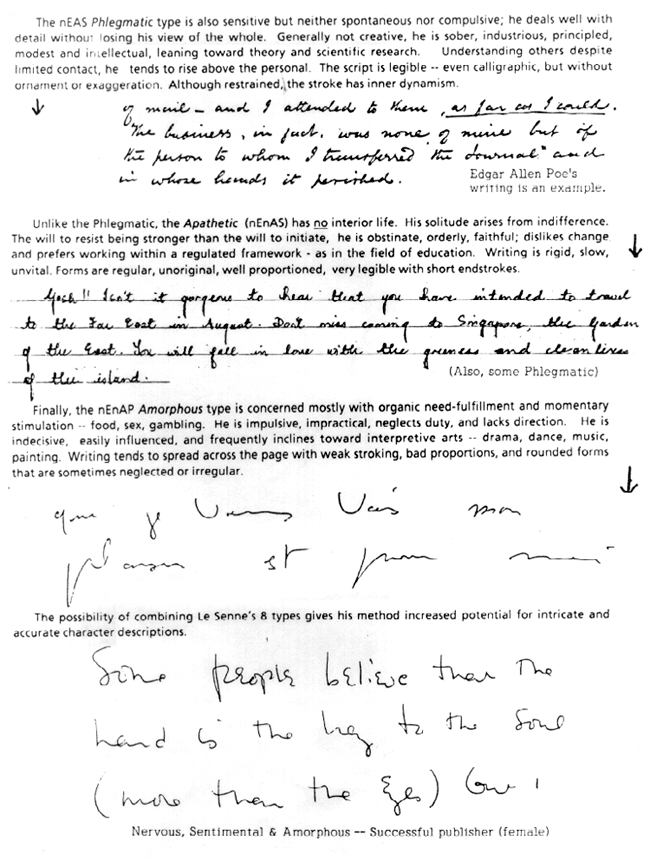 The nEAS Phlegmatic type is also sensitive but neither spontaneous nor compulsive; he deals well with
detail without losing his view of the whole. Generally not creative, he is sober, industrious, principled,
modest and intellectual, leaning toward theory and scientific research. Understanding others despite
limited contact, he tends to rise above the personal. The script is legible -- even calligraphic, but without
ornament or exaggeration. Although restrained, the stroke has inner dynamism.
of mail – and I attended to them, as far as I could.
The business, in fact, was none of mine but of
the person to whom I transferred the Journal" and
in whose hands it perished.
Edgar Allen Poe's
writing is an example.
Unlike the Phlegmatic, the Apathetic (nEnAS) has no interior life. His solitude arises from indifference.
The will to resist being stronger than the will to initiate, he is obstinate, orderly, faithful; dislikes change
and prefers working within a regulated framework - as in the field of education. Writing is rigid, slow,
unvital. Forms are regular, unoriginal, well proportioned, very legible with short endstrokes.
Gosh!! Isn't it gorgeous to hear that you have intended to travel
to the Far East in August. Don't miss coming to Singapore, the Garden
of the East. You will fall in love with the greeness and cleanliness
of this island.
(Also, some Phlegmatic)
Finally, the nEnAP Amorphous type is concerned mostly with organic need-fulfillment and momentary
stimulation -- food, sex, gambling. He is impulsive, impractical, neglects duty, and lacks direction. He is
indecisive, easily influenced, and frequently inclines toward interpretive arts -- drama, dance, music,
painting. Writing tends to spread across the page with weak stroking, bad proportions, and rounded forms
that are sometimes neglected or irregular.
que je Vais mon
st pour
The possibility of combining Le Senne's 8 types gives his method increased potential for intricate and
accurate character descriptions.
Some people believe that the
hand is the key to the soul
(more than the Eyes) Can I
Nervous, Sentimental & Amorphous -- Successful publisher (female)